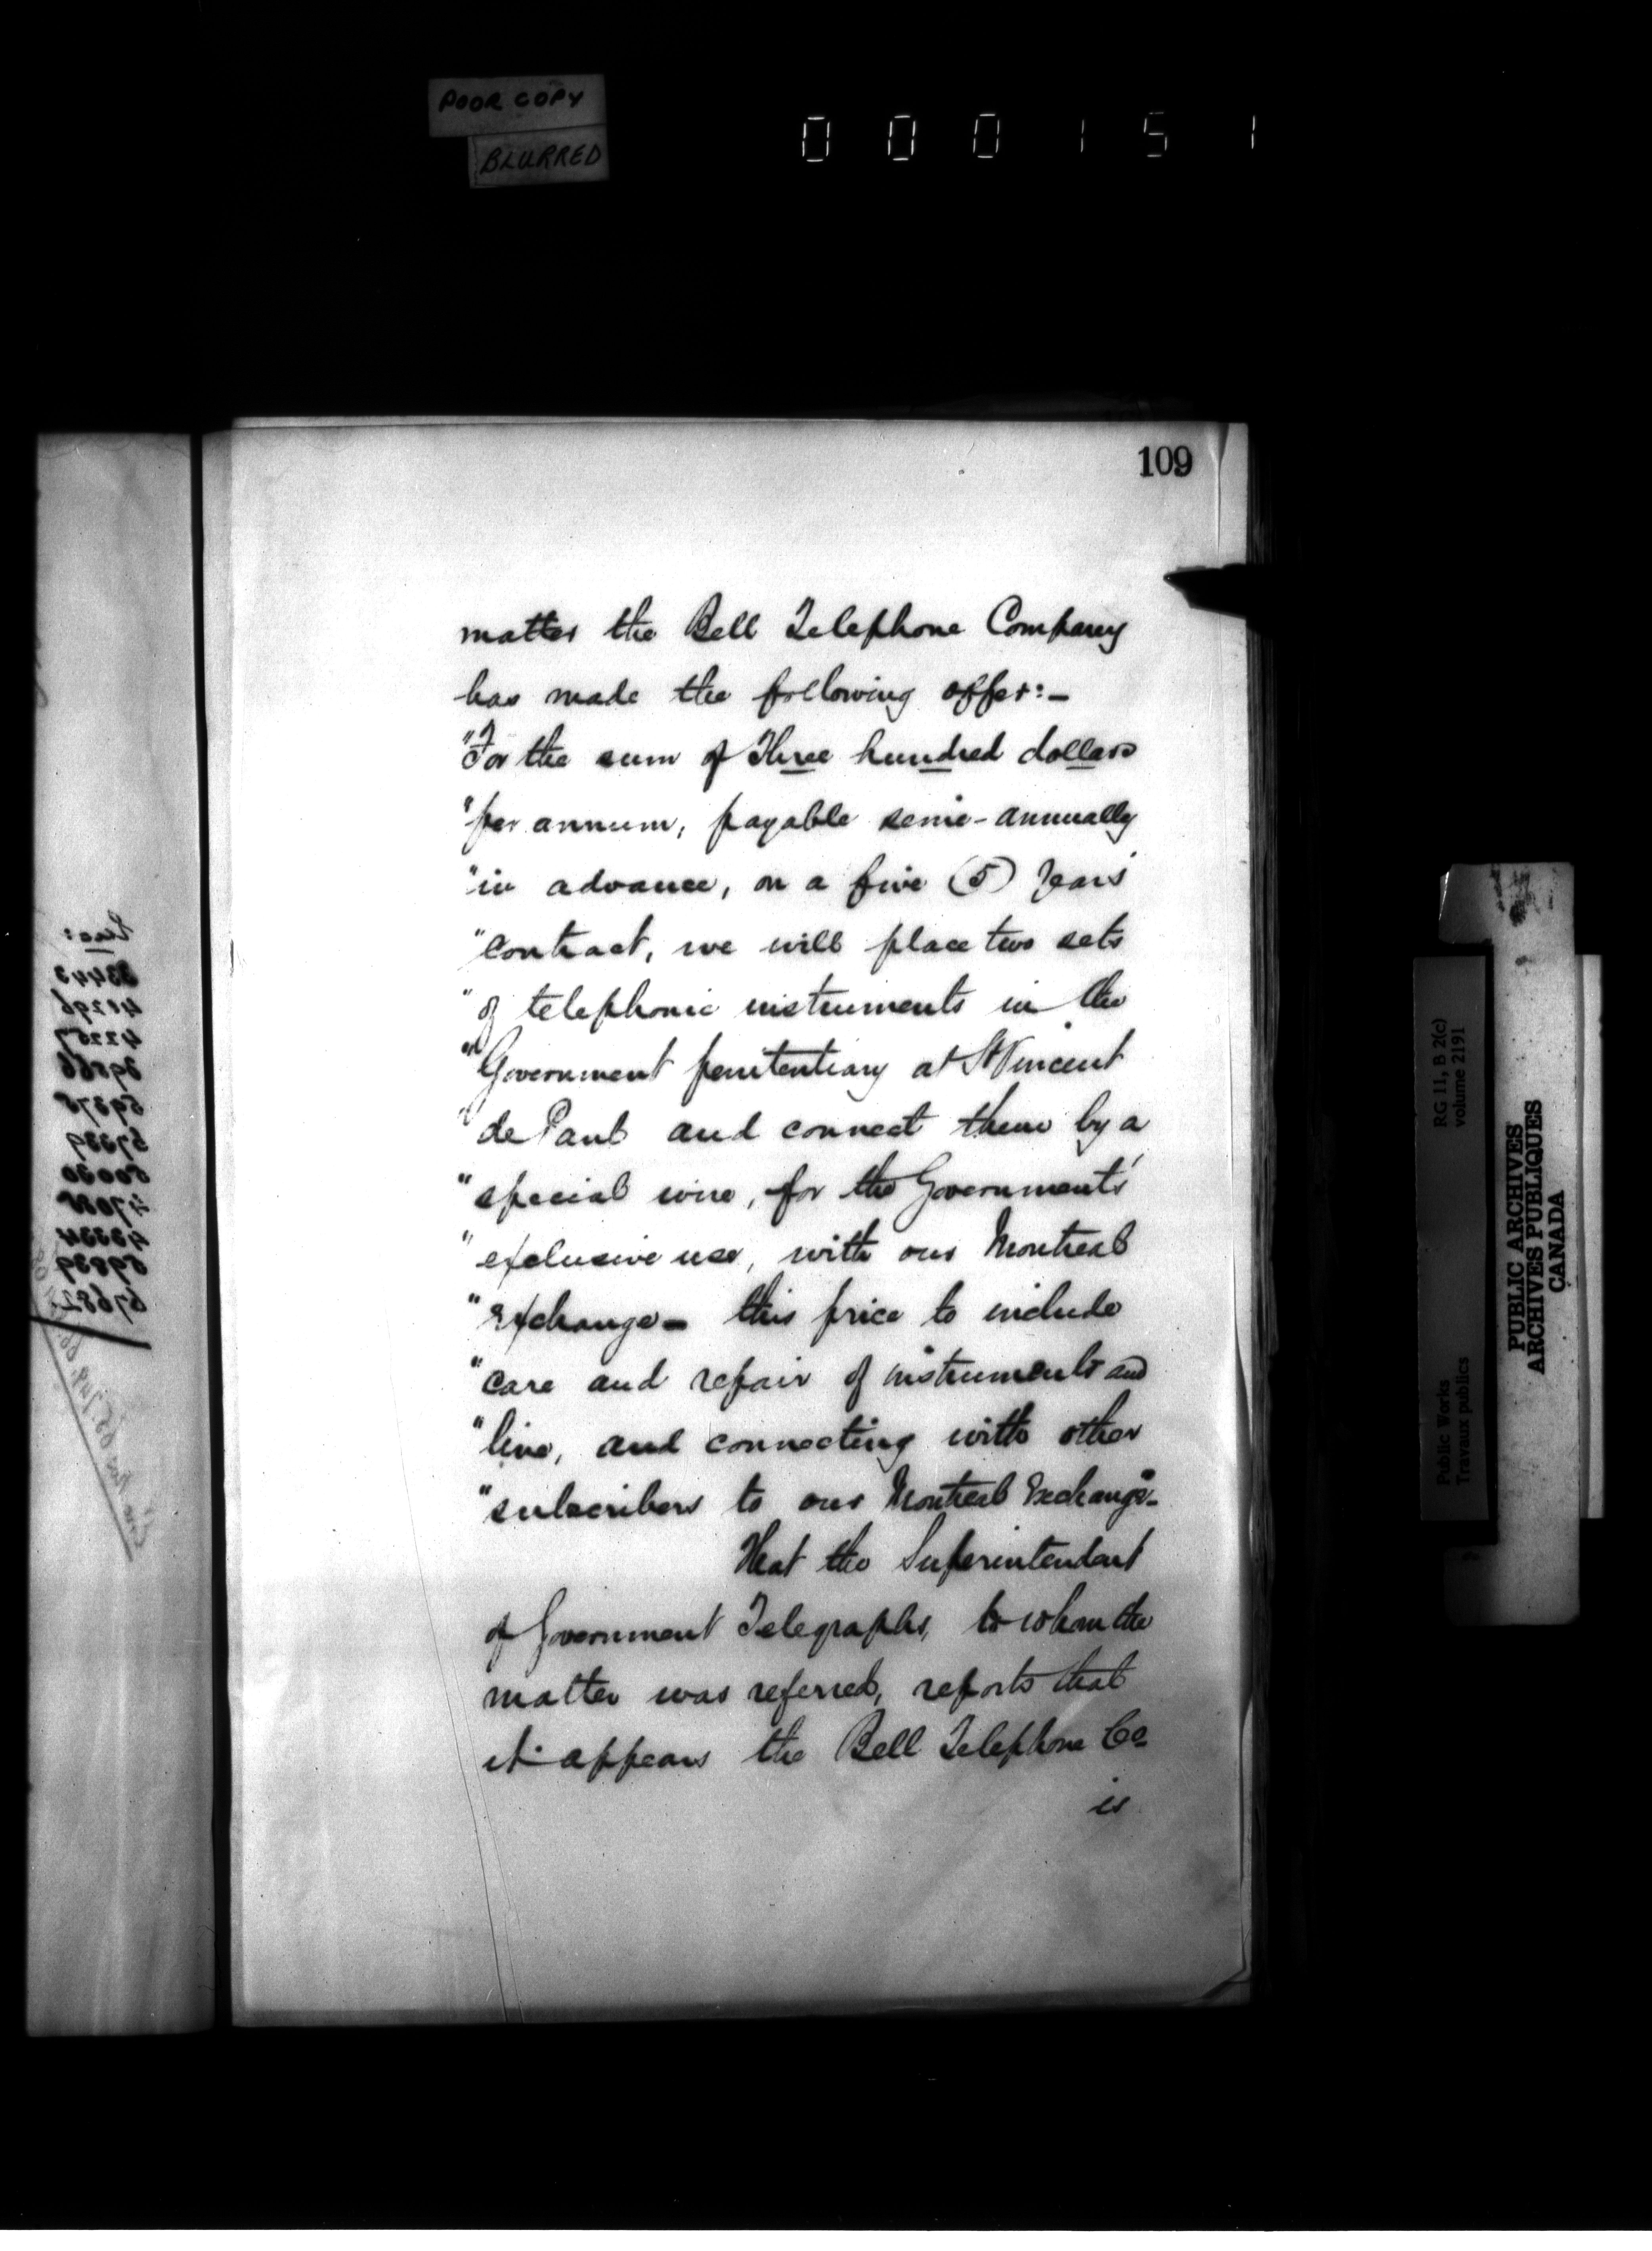 POOR COPY
BLURRED
000151
109
matter the Bell Telephone Company
has made the following offer:—
"For the sum of Three hundred dollars
"per annum, payable semi-annually
"in advance, on a five (5) years'
"contract, we will place two sets
"of telephonic instruments in the
"Government penitentiary at St Vincent
"de Paul and connect them by a
"special wire, for the Government's
"exclusive use, with our Montreal
"exchange — this price to include
"care and repair of instruments and
"line, and connecting with other
"subscribers to our Montreal Exchange.
That the Superintendent
of Government Telegraphs, to whom the
matter was referred, reports that
it appears the Bell Telephone Co.
is
33443
41296
42257
29866
59378
57339
50030
47088
43334
59839
67682
RG 11, B 2(c)
volume 2191
Public Works
Travaux publics
PUBLIC ARCHIVES
ARCHIVES PUBLIQUES
CANADA